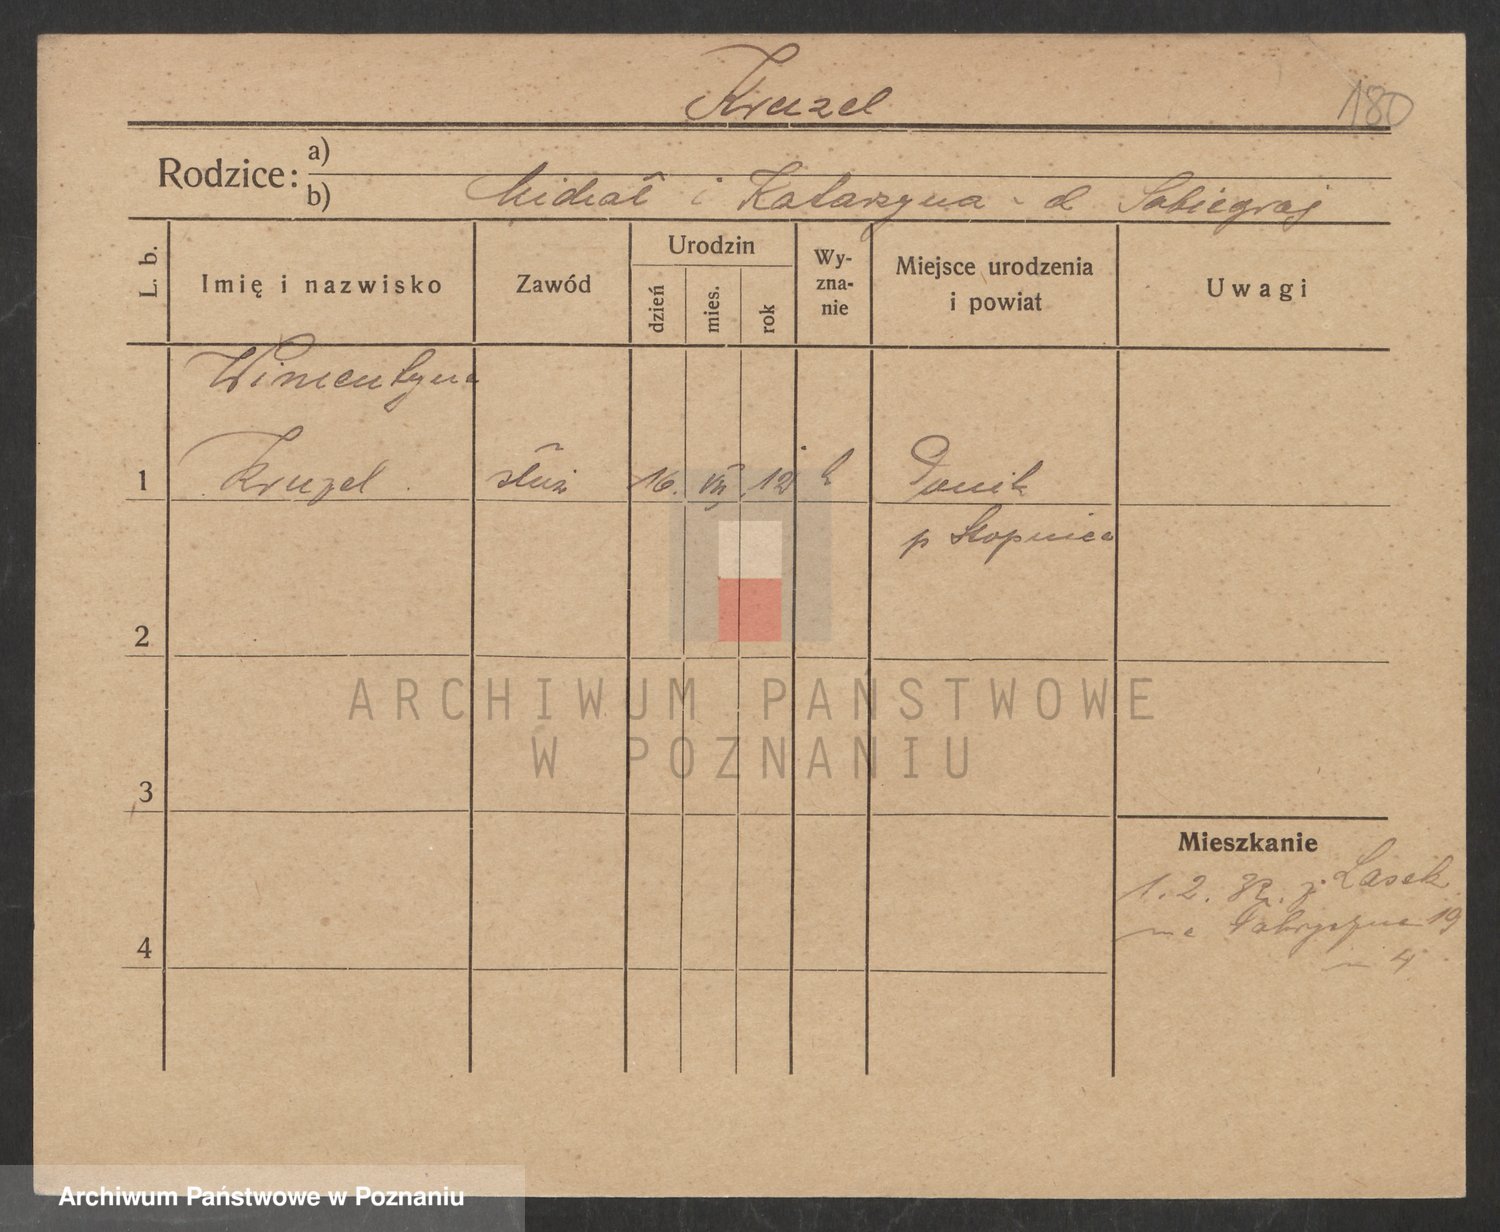 Kruzel
180
Rodzice: a)
b) Michał i Katarzyna - d Sobiegraj
L. b.
Imię i nazwisko
Zawód
Urodzin
dzień
mies.
rok
Wy-
zna-
nie
Miejsce urodzenia
i powiat
Uwagi
Wincentyna
1 Kruzel służ 16. VII. 12 k
p Stopnica
2
ARCHIWUM PAŃSTWOWE
W POZNANIU
3
Mieszkanie
1. 2. z Lasek
na Fabryczna 19
4
4
Archiwum Państwowe w Poznaniu